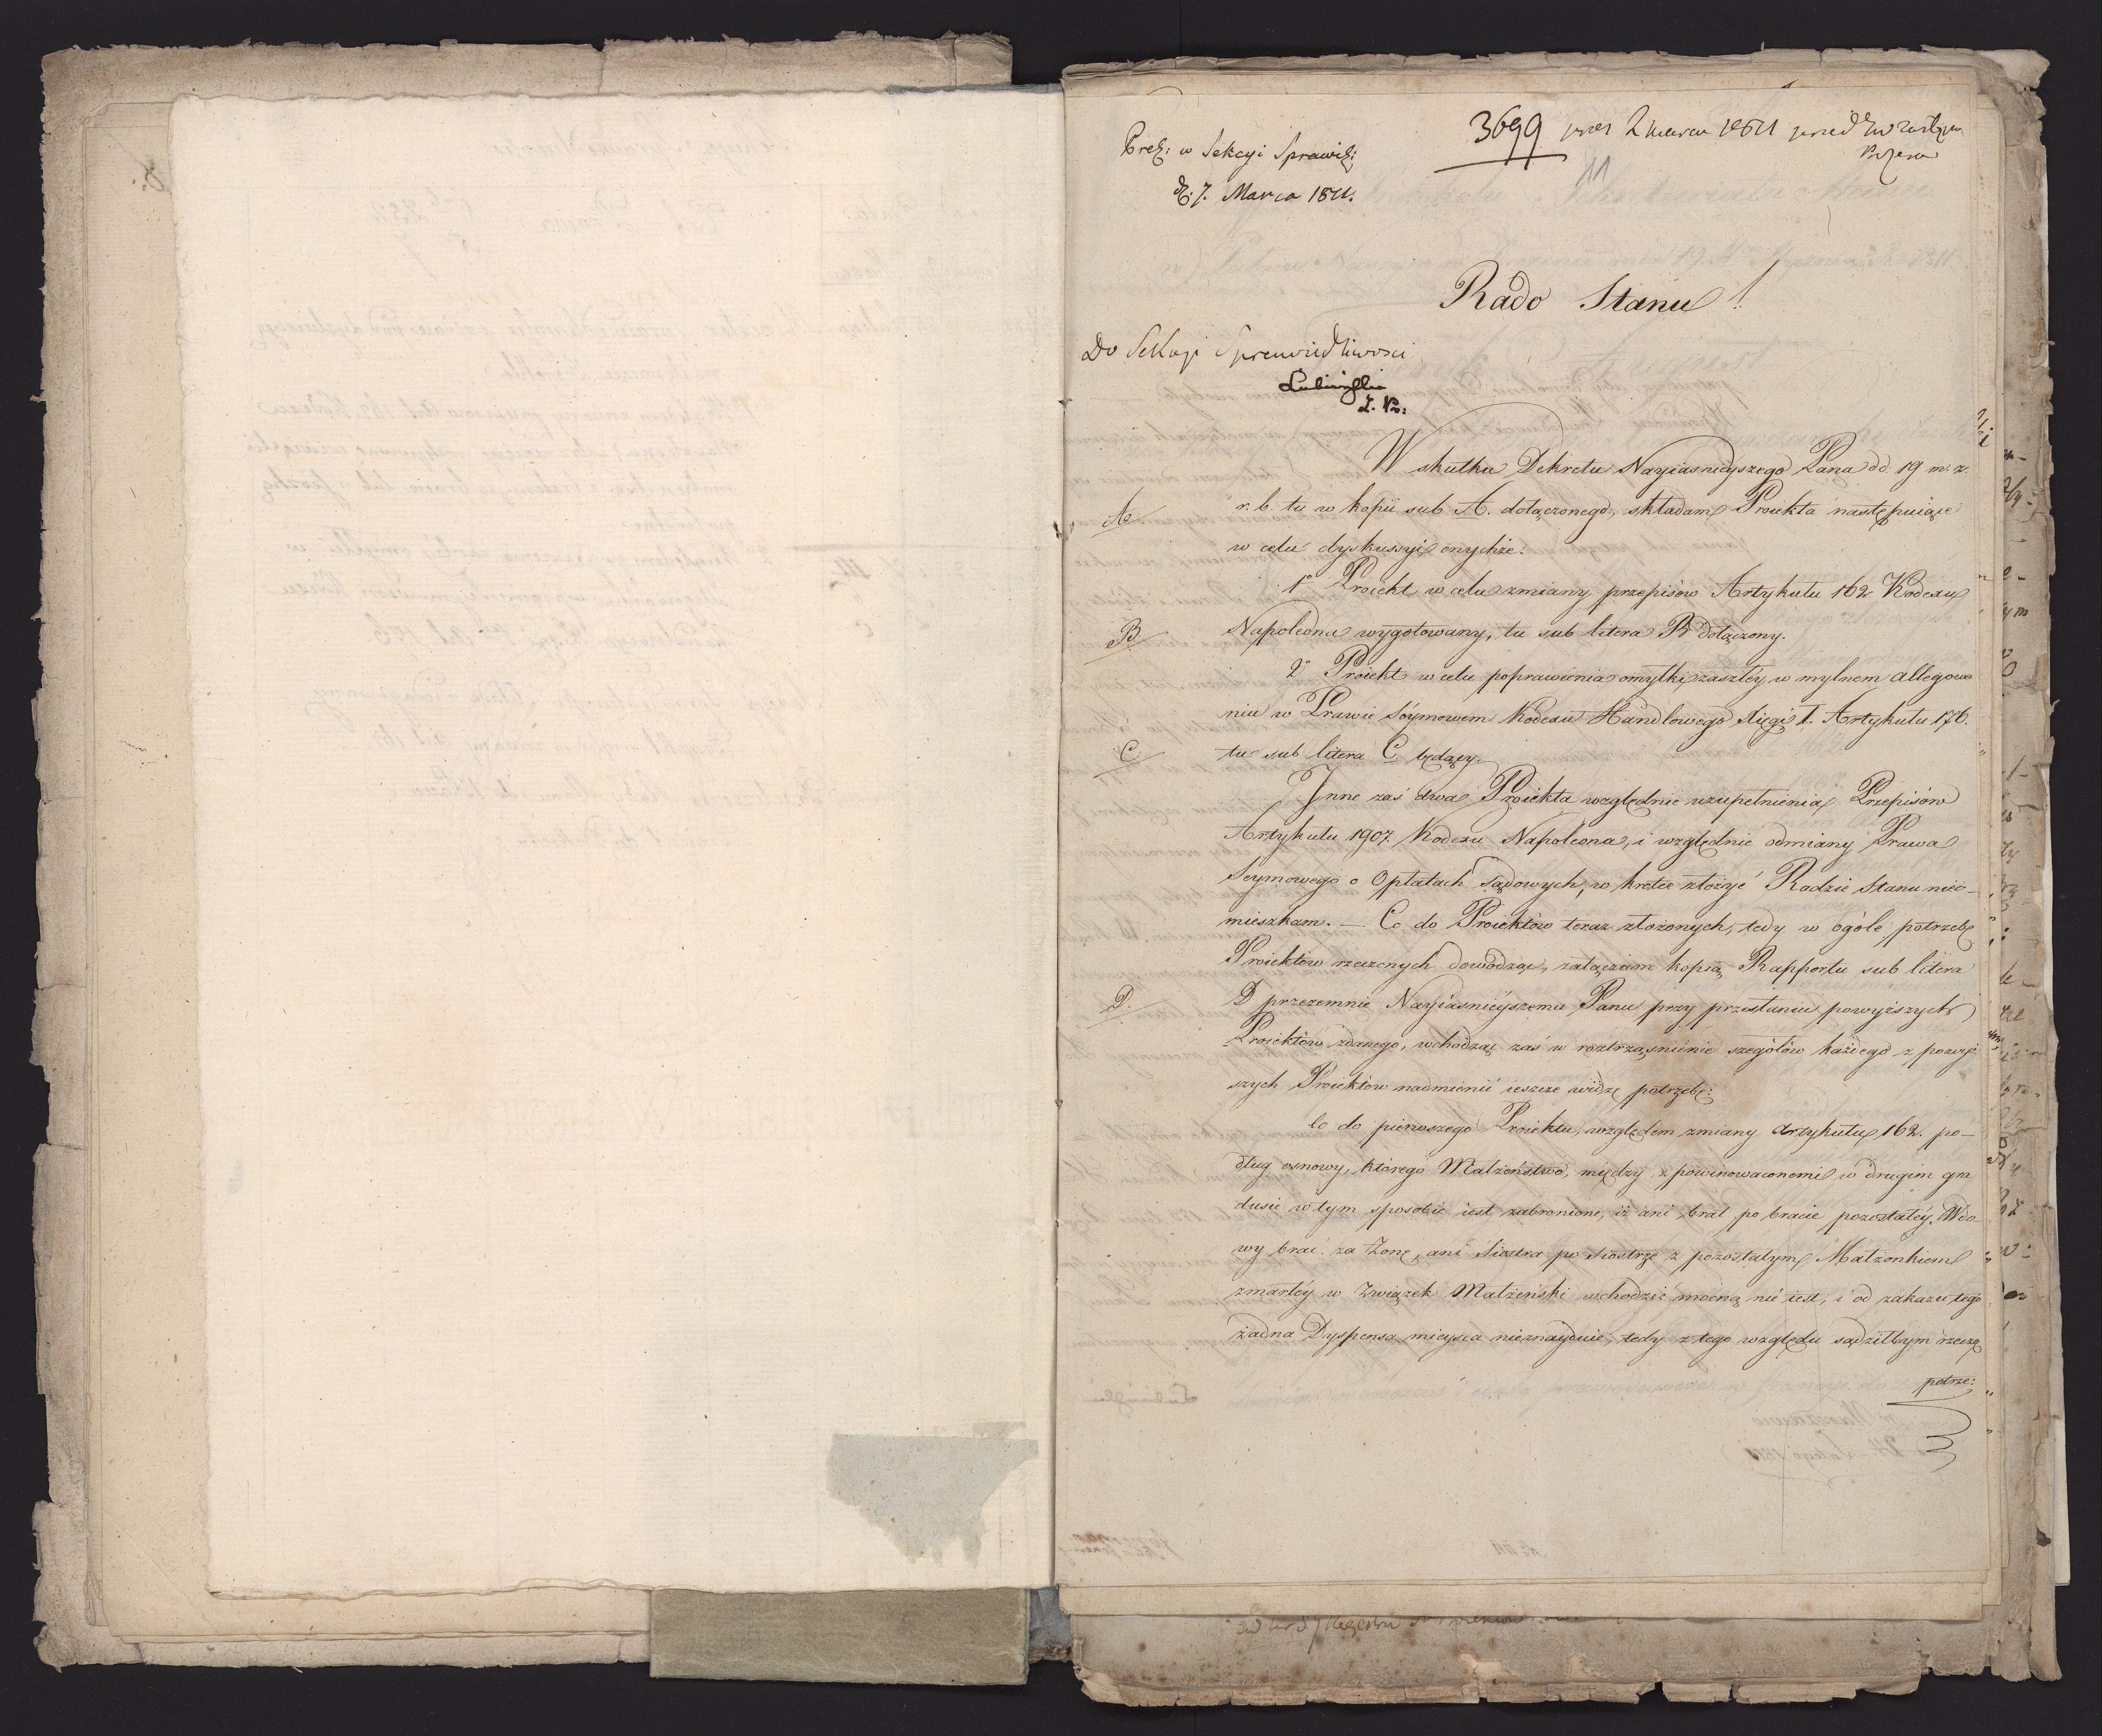 Prez: w Sekcyi Sprawied:
d. 7. Marca 1811.
3699 2 Marca 1811
11
Rado Stanu!
Do Sekcyi Sprawiedliwosci
Łubieński
A
W skutku Dekretu Nayiasnieyszego Pana dd. 19 m. z.
r. b. tu w kopii sub A. dołączonego, składam Proiekta następuiące
w celu dyskussyi onychże:
1° Proiekt w celu zmiany przepisów Artykułu 162 Kodexu
B.
Napoleona wygotowany, tu sub litera B dołączony.
2° Proiekt w celu poprawienia omyłki zaszłéy w mylnem allegowa
niu w Prawie Séymowem Kodexu Handlowego Xięgi I. Artykułu 176.
C.
tu sub litera C. będący.
Jnne zaś dwa Proiekta względnie uzupełnienia Przepisów
Artykułu 1907. Kodexu Napoleona, i względnie odmiany Prawa
Seymowego o Opłatach sądowych, w krótce złożyć Radzie Stanu nieo-
mieszkam. — Co do Proiektów teraz złożonych, tedy w ogóle potrzebę
Proiektów rzeczonych dowodząc, załączam kopią Rapportu sub litera
D.
D przezemnie Nayiasnieyszemu Panu przy przesłaniu powyższych
Proiektów zdanego, wchodząc zaś w roztrząśnienie szegółów każdego z powyż
szych Proiektów nadmienić ieszcze widzę potrzebę:
Co do pierwszego Proiektu, względem zmiany Artykułu 162. po-
dług osnowy, którego Małżeństwo, między z powinowaconemi w drugim gra
dusie w tym sposobie iest zabronione, iż ani brat po bracie pozostałéy Wdo-
wy brać za Żonę, ani Siostra po Siostrze z pozostałym Małżonkiem
zmarłéy w Związek Małżeński wchodzić mocną nie iest, i od zakazu tego
żadna Dyspensa mieysca nieznayduie, tedy z tego względu sądziłbym rzeczą
potrze: